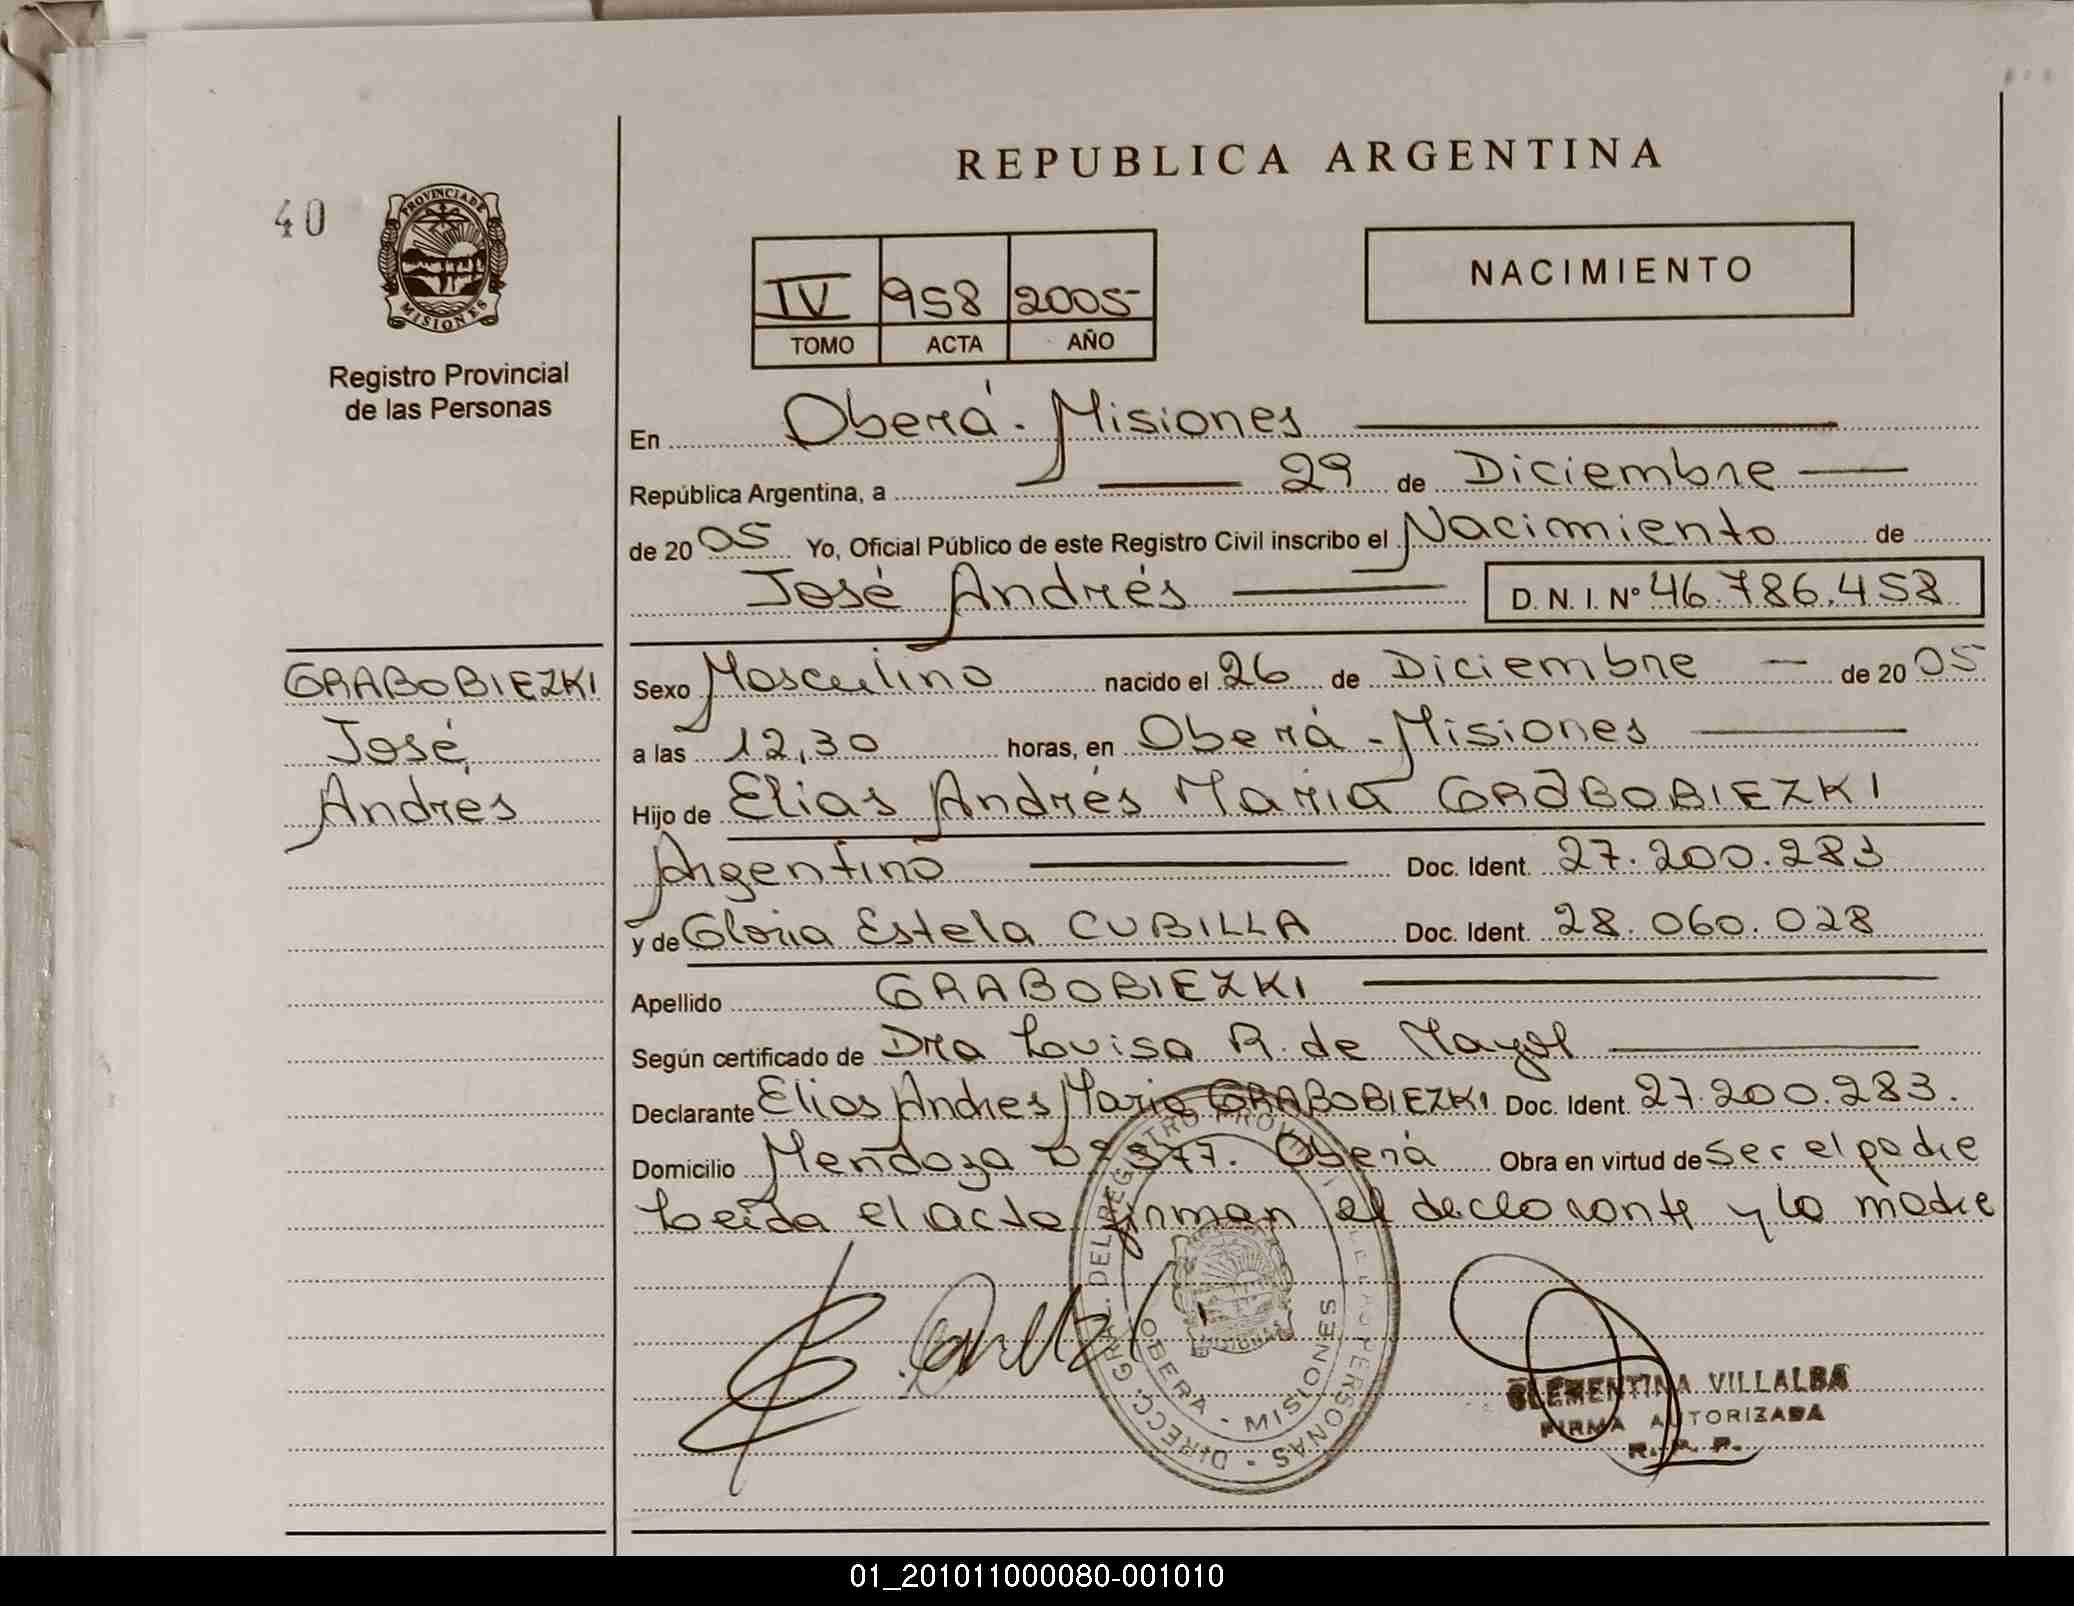 REPUBLICA ARGENTINA
40
PROVINCIA DE
MISIONES
Registro Provincial
de las Personas
IV 958 2005
TOMO ACTA AÑO
NACIMIENTO
En Oberá - Misiones
República Argentina, a 29 de Diciembre
de 2005 Yo, Oficial Público de este Registro Civil inscribo el Nacimiento de
José Andrés D. N. I. Nº 46.786.458
GRABOBIEZKI
José
Andrés
Sexo Masculino nacido el 26 de Diciembre de 2005
a las 12,30 horas, en Oberá - Misiones
Hijo de Elias Andrés Maria GRABOBIEZKI
Argentino Doc. Ident. 27.200.283
y de Gloria Estela CUBILLA Doc. Ident. 28.060.028
Apellido GRABOBIEZKI
Según certificado de Dra Louisa R. de Mayol
Declarante Elias Andres Maria GRABOBIEZKI Doc. Ident. 27.200.283.
Domicilio Mendoza Nº 377. Oberá Obra en virtud de ser el padre
Leida el acta firman el declarante y la madre
DIRECC. GRAL. DEL REGISTRO PROVINCIAL DE LAS PERSONAS
OBERA - MISIONES
MISIONES
CLEMENTINA VILLALBA
FIRMA AUTORIZADA
R. P. P.
01_201011000080-001010